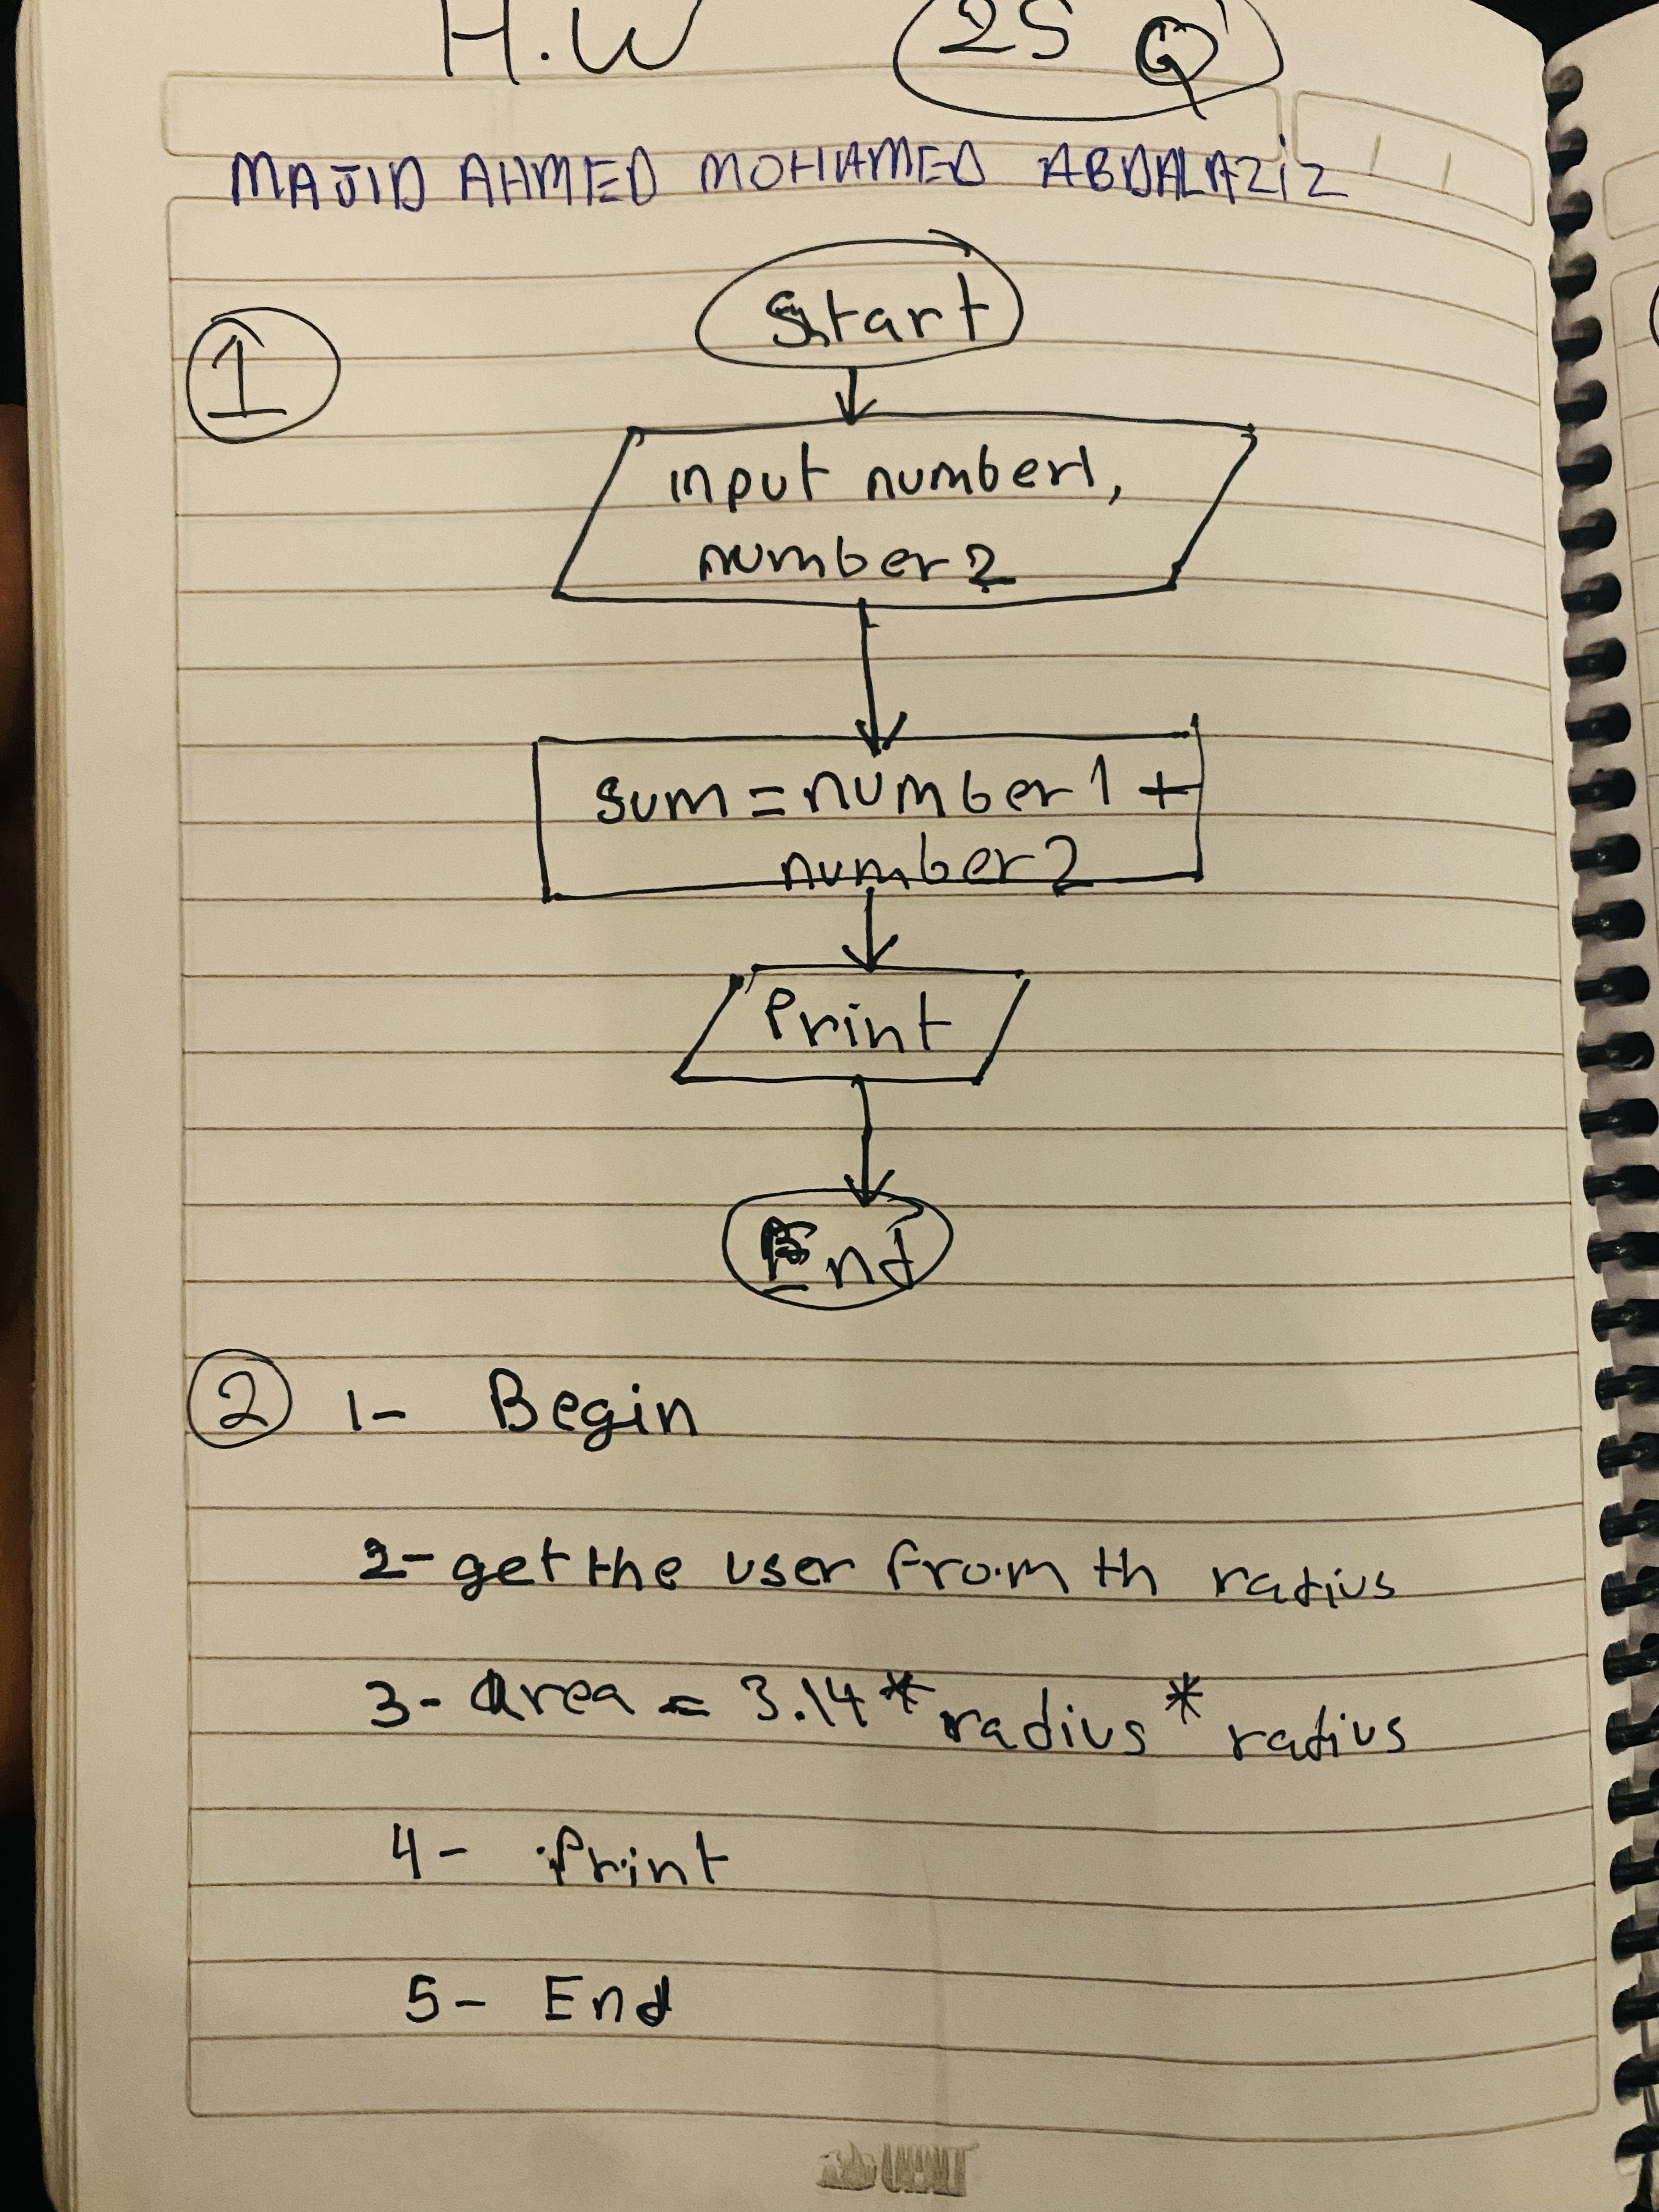 H.W 25 Q
MAJID AHMED MOHAMED ABDALAZiz
1
Start
input number1,
number2
sum = number1 +
number2
Print
End
2 1- Begin
2- get the user from th radius
3- area = 3.14 * radius * radius
4- Print
5- End